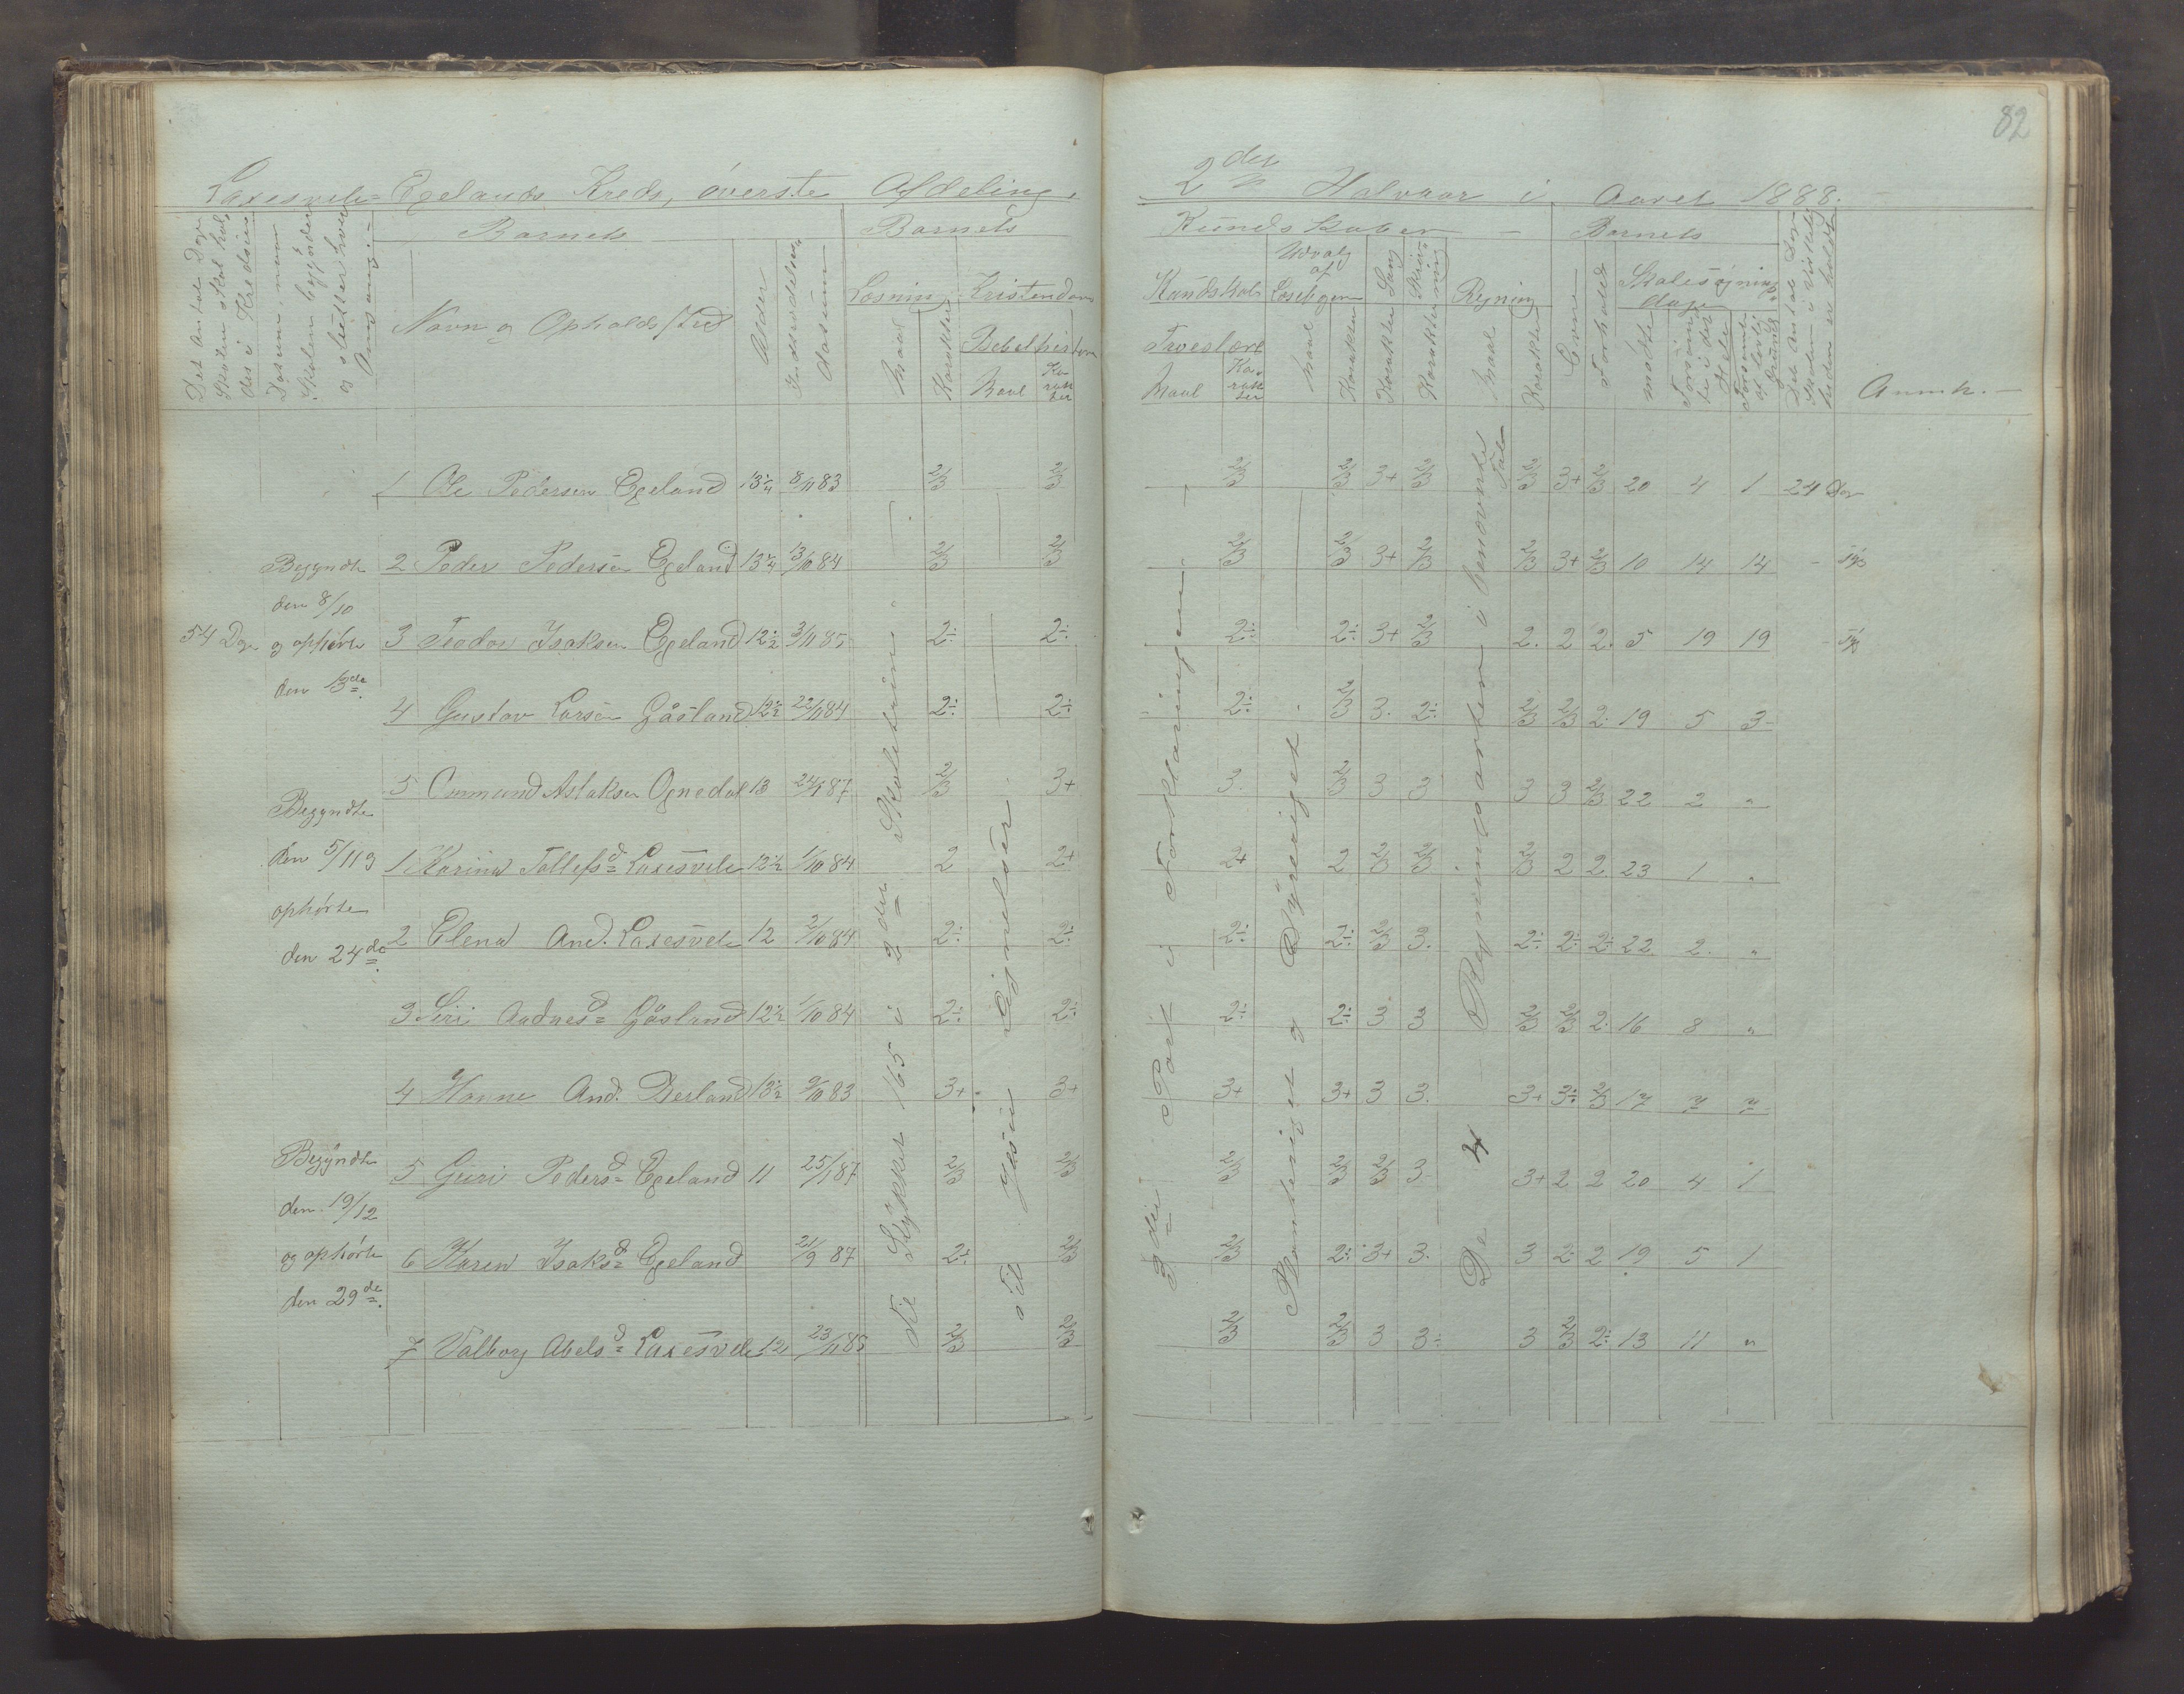 82
Laxesvele-Egelands Kreds, överste Afdeling.
2den Halvaar i Aaret 1888.
Det Antal Dage Skolen skal holdes i Kredsen
Datum, naar Skolen begynder og slutter hver Omgang.
Barnets
Navn og Opholdssted
Alder
Indtrædelses Datum
Barnets
Læsning
Maal
Karakter
Kristendom
Bibelhistorie
Maal
Karakter
Kundskaber
Kundskab
Troeslære
Maal
Karakter
Udvalg af Læsebogen
Maal
Karakter
Sang
Karakter
Skrivning
Karakter
Regning
Maal
Karakter
Barnets
Evne
Forhold
Skolesøgningsdage
mödte
Forsömte i det Hele
Forsömte af lovlig Grund
Det Antal Dage Skolen i Virkeligheden er holdt
Anmk.
1 Ole Pedersen Egeland 13 1/4 8/11 83 2/3 2/3 2/3 2/3 3+ 2/3 2/3 3+ 2/3 20 4 1 24 Dage
2 Peder Pedersen Egeland 13 1/4 13/10 84 2/3 2/3 2/3 2/3 3+ 2/3 2/3 3+ 2/3 10 14 14 -
3 Teodor Isaksen Egeland 12 1/2 3/11 85 2÷ 2÷ 2÷ 2÷ 3+ 2/3 2. 2 2. 5 19 19 -
4 Gustav Larsen Gåsland 12 1/2 22/11 84 2÷ 2÷ 2÷ 2/3 3. 2÷ 2/3 2/3 2. 19 5 3
5 Ommund Aslaksen Ognedal 13 24/1 87 2/3 3+ 3. 2/3 3 3 3 3 2/3 22 2 "
1 Karina Tollefsd Laxesvele 12 1/2 1/10 84 2 2+ 2+ 2 2/3 2/3 2/3 2 2. 23 1 "
2 Elena And. Laxesvele 12 2/10 84 2÷ 2÷ 2÷ 2÷ 2/3 3. 2÷ 2÷ 2÷ 22 2. "
3 Siri Aadnesd Gåsland 12 1/2 1/10 84 2÷ 2÷ 2÷ 2÷ 3 3 2/3 2/3 2. 16 8 "
4 Hanne And. 13 1/2 9/10 83 3+ 3+ 3+ 3+ 3 3. 3+ 3÷ 2/3 17 7 7
5 Guri Pedersd Egeland 11 25/1 87 2/3 2/3 2/3 2/3 2/3 3 3+ 2 2 20 4 1
6 Karen Isaksd Egeland 21/9 87 2÷ 2/3 2/3 2÷ 3+ 3. 3 2 2 19 5 1
7 Valborg Abelsd Laxesvele 12 23/11 85 2/3 2/3 2/3 2/3 3 3÷ 3 2/3 2÷ 13 11 "
54 Dage
Begyndte
den 8/10
og ophörte
den 13de
Begyndte
den 5/11 og
ophörte
den 24de
Begyndte
den 19/12
og ophörte
den 29de.
Til Stykket 165 i 2den Skoletrin
til Jesu Lignelser
3die Part i Forklaringen
Planteriget og Dyreriget
De 4 Regningsarter i benævnte Tal